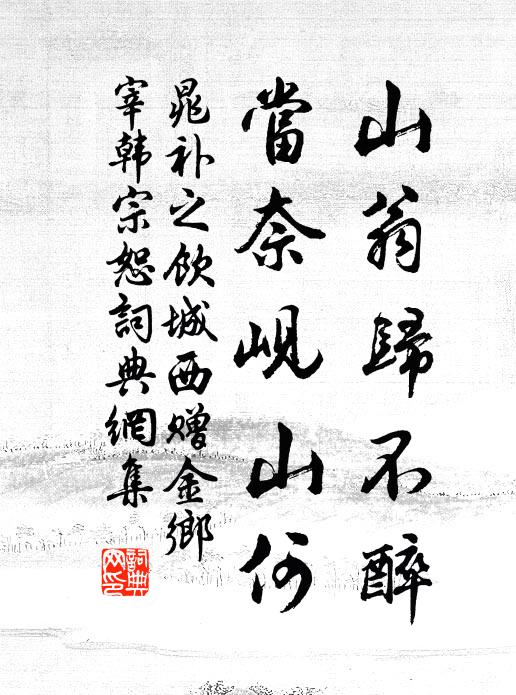 山翁歸不醉
當奈峴山何
晁补之飲城西赠金鄉
宰韩宗恕詞典網集
詞典
网印